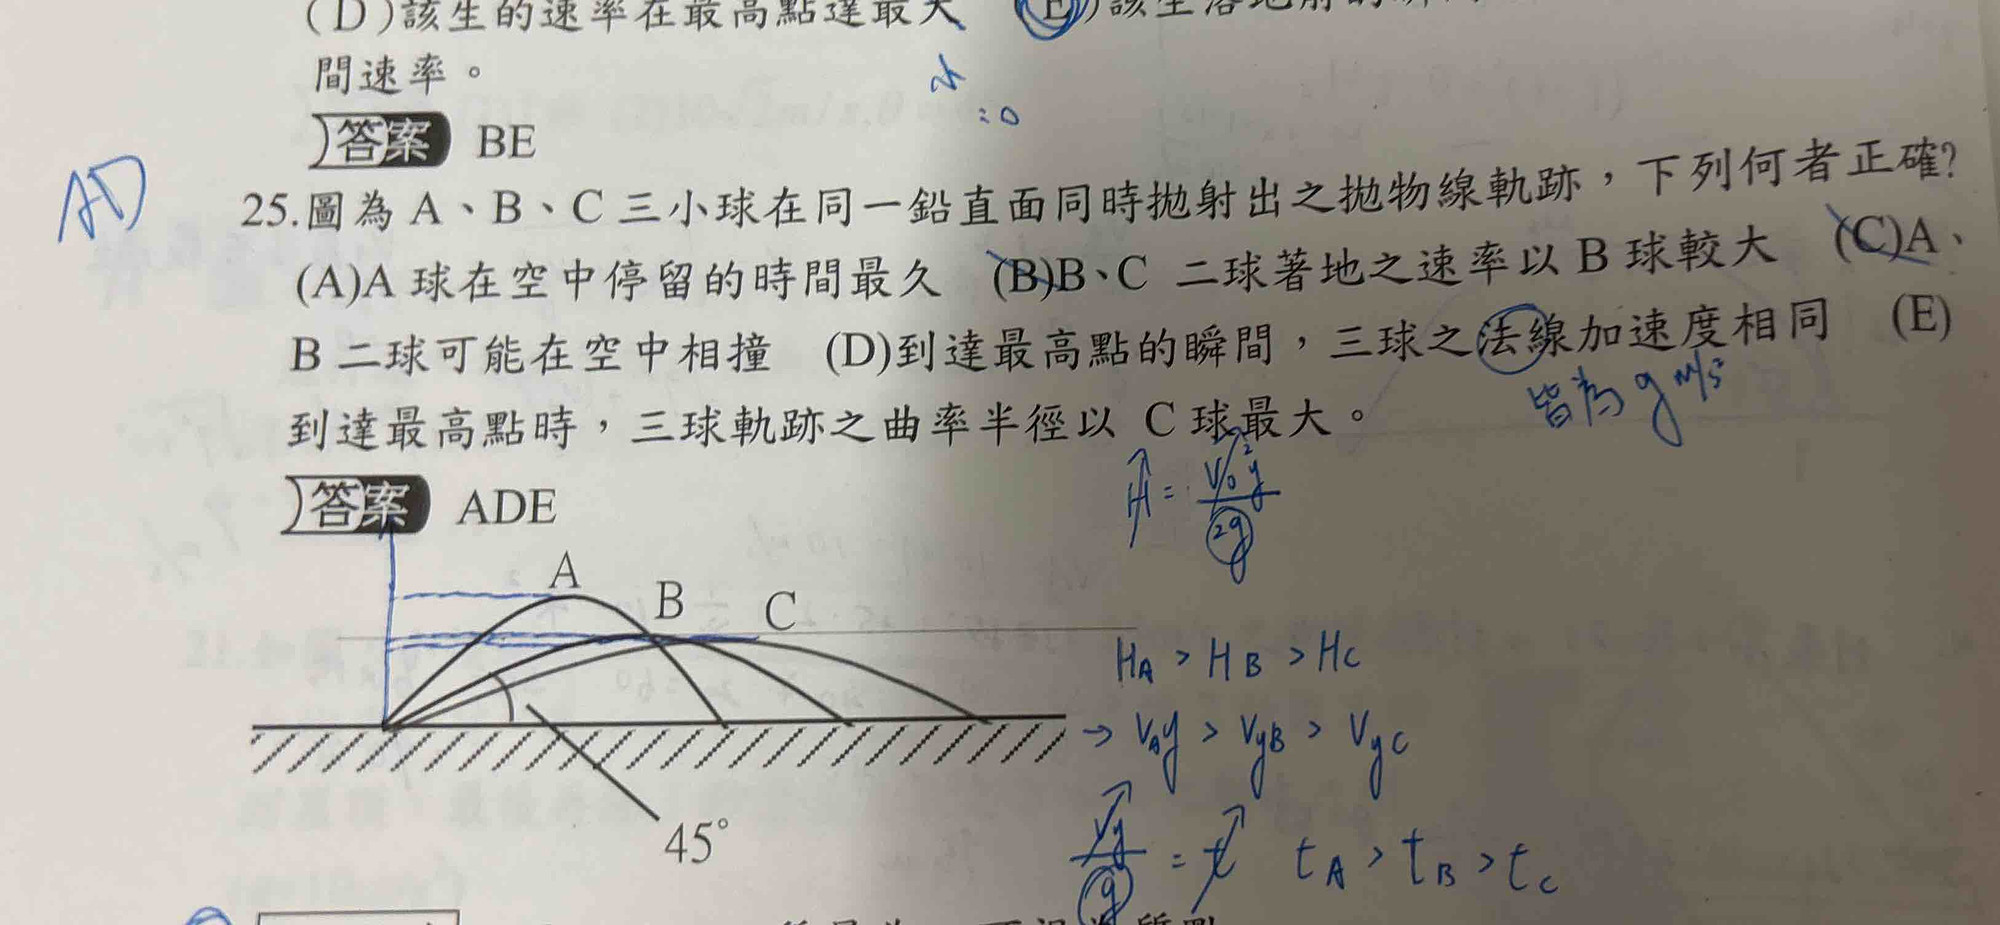 (D)該生的速率在最高點達最大 (E)該生落地前的瞬
間速率。
=0
答案 BE
AD
25.圖為 A、B、C 三小球在同一鉛直面同時拋射出之拋物線軌跡,下列何者正確?
(A)A 球在空中停留的時間最久 (B)B、C 二球著地之速率以 B 球較大 (C)A、
B 二球可能在空中相撞 (D)到達最高點的瞬間,三球之法線加速度相同 (E)
皆為 g m/s²
到達最高點時,三球軌跡之曲率半徑以 C 球最大。
H = V₀²y / 2g
答案 ADE
A
B
C
HA > HB > HC
→ VAy > VyB > VyC
45°
Vy / g = t tA > tB > tC